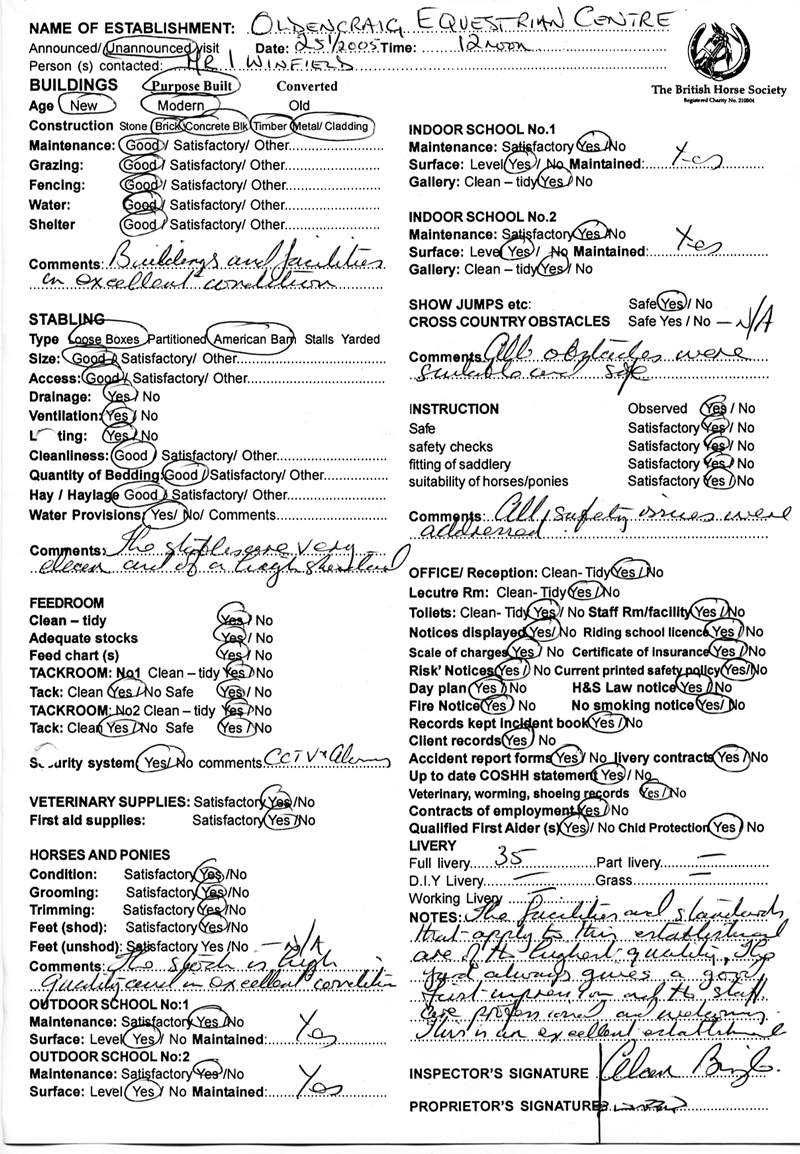 NAME OF ESTABLISHMENT: OLDENCRAIG EQUESTRIAN CENTRE
Announced/ Unannounced visit Date: 25/1/2005 Time: 12 noon
Person (s) contacted: MR I WINFIELD
The British Horse Society
Registered Charity No. 210504
BUILDINGS Purpose Built Converted
Age New Modern Old
Construction Stone Brick Concrete Blk Timber Metal/ Cladding
Maintenance: Good / Satisfactory/ Other
Grazing: Good/ Satisfactory/ Other
Fencing: Good/ Satisfactory/ Other
Water: Good/ Satisfactory/ Other
Shelter Good / Satisfactory/ Other
Comments: Buildings and facilities
in excellent condition
STABLING
Type Loose Boxes Partitioned American Barn Stalls Yarded
Size: Good / Satisfactory/ Other
Access: Good/ Satisfactory/ Other
Drainage: Yes / No
Ventilation: Yes / No
L ting: Yes / No
Cleanliness: Good Satisfactory/ Other
Quantity of Bedding: Good / Satisfactory/ Other
Hay / Haylage Good / Satisfactory/ Other
Water Provisions: Yes/ No/ Comments
Comments: The stables are very
clean and of a high standard
FEEDROOM
Clean – tidy Yes / No
Adequate stocks Yes / No
Feed chart (s) Yes / No
TACKROOM: No1 Clean – tidy Yes / No
Tack: Clean Yes / No Safe Yes / No
TACKROOM: No2 Clean – tidy Yes / No
Tack: Clean Yes / No Safe Yes / No
Security system: Yes/ No comments CCTV + Alarms
VETERINARY SUPPLIES: Satisfactory Yes /No
First aid supplies: Satisfactory Yes / No
HORSES AND PONIES
Condition: Satisfactory Yes /No
Grooming: Satisfactory Yes /No
Trimming: Satisfactory Yes / No
Feet (shod): Satisfactory Yes / No
Feet (unshod): Satisfactory Yes / No – N/A
Comments: The stock is high
quality and in excellent condition
OUTDOOR SCHOOL No:1
Maintenance: Satisfactory Yes / No
Surface: Level Yes / No Maintained: Yes
OUTDOOR SCHOOL No:2
Maintenance: Satisfactory Yes / No
Surface: Level Yes / No Maintained: Yes
INDOOR SCHOOL No.1
Maintenance: Satisfactory Yes /No
Surface: Level Yes / No Maintained: Yes
Gallery: Clean – tidy Yes / No
INDOOR SCHOOL No.2
Maintenance: Satisfactory Yes /No
Surface: Level Yes / No Maintained: Yes
Gallery: Clean – tidy Yes / No
SHOW JUMPS etc: Safe Yes / No
CROSS COUNTRY OBSTACLES Safe Yes / No – N/A
Comments All obstacles were
suitable and safe
INSTRUCTION Observed Yes / No
Safe Satisfactory Yes / No
safety checks Satisfactory Yes / No
fitting of saddlery Satisfactory Yes / No
suitability of horses/ponies Satisfactory Yes / No
Comments: All safety issues were
addressed.
OFFICE/ Reception: Clean- Tidy Yes / No
Lecutre Rm: Clean- Tidy Yes / No
Toliets: Clean- Tidy Yes / No Staff Rm/facility Yes / No
Notices displayed Yes/ No Riding school licence Yes / No
Scale of charges Yes / No Certificate of insurance Yes / No
Risk' Notices Yes / No Current printed safety policy Yes/No
Day plan Yes / No H&S Law notice Yes / No
Fire Notice Yes / No No smoking notice Yes/ No
Records kept incident book Yes / No
Client records Yes / No
Accident report forms Yes / No livery contracts Yes / No
Up to date COSHH statement Yes / No
Veterinary, worming, shoeing records Yes / No
Contracts of employment Yes / No
Qualified First Aider (s) Yes / No Chid Protection Yes / No
LIVERY
Full livery 35 Part livery –
D.I.Y Livery – Grass –
Working Livery –
NOTES: The facilities and standards
that apply to this establishment
are of the highest quality. The
yard always gives a good
first impression and the staff
are professional and welcoming.
This is an excellent establishment
INSPECTOR'S SIGNATURE
PROPRIETOR'S SIGNATURE